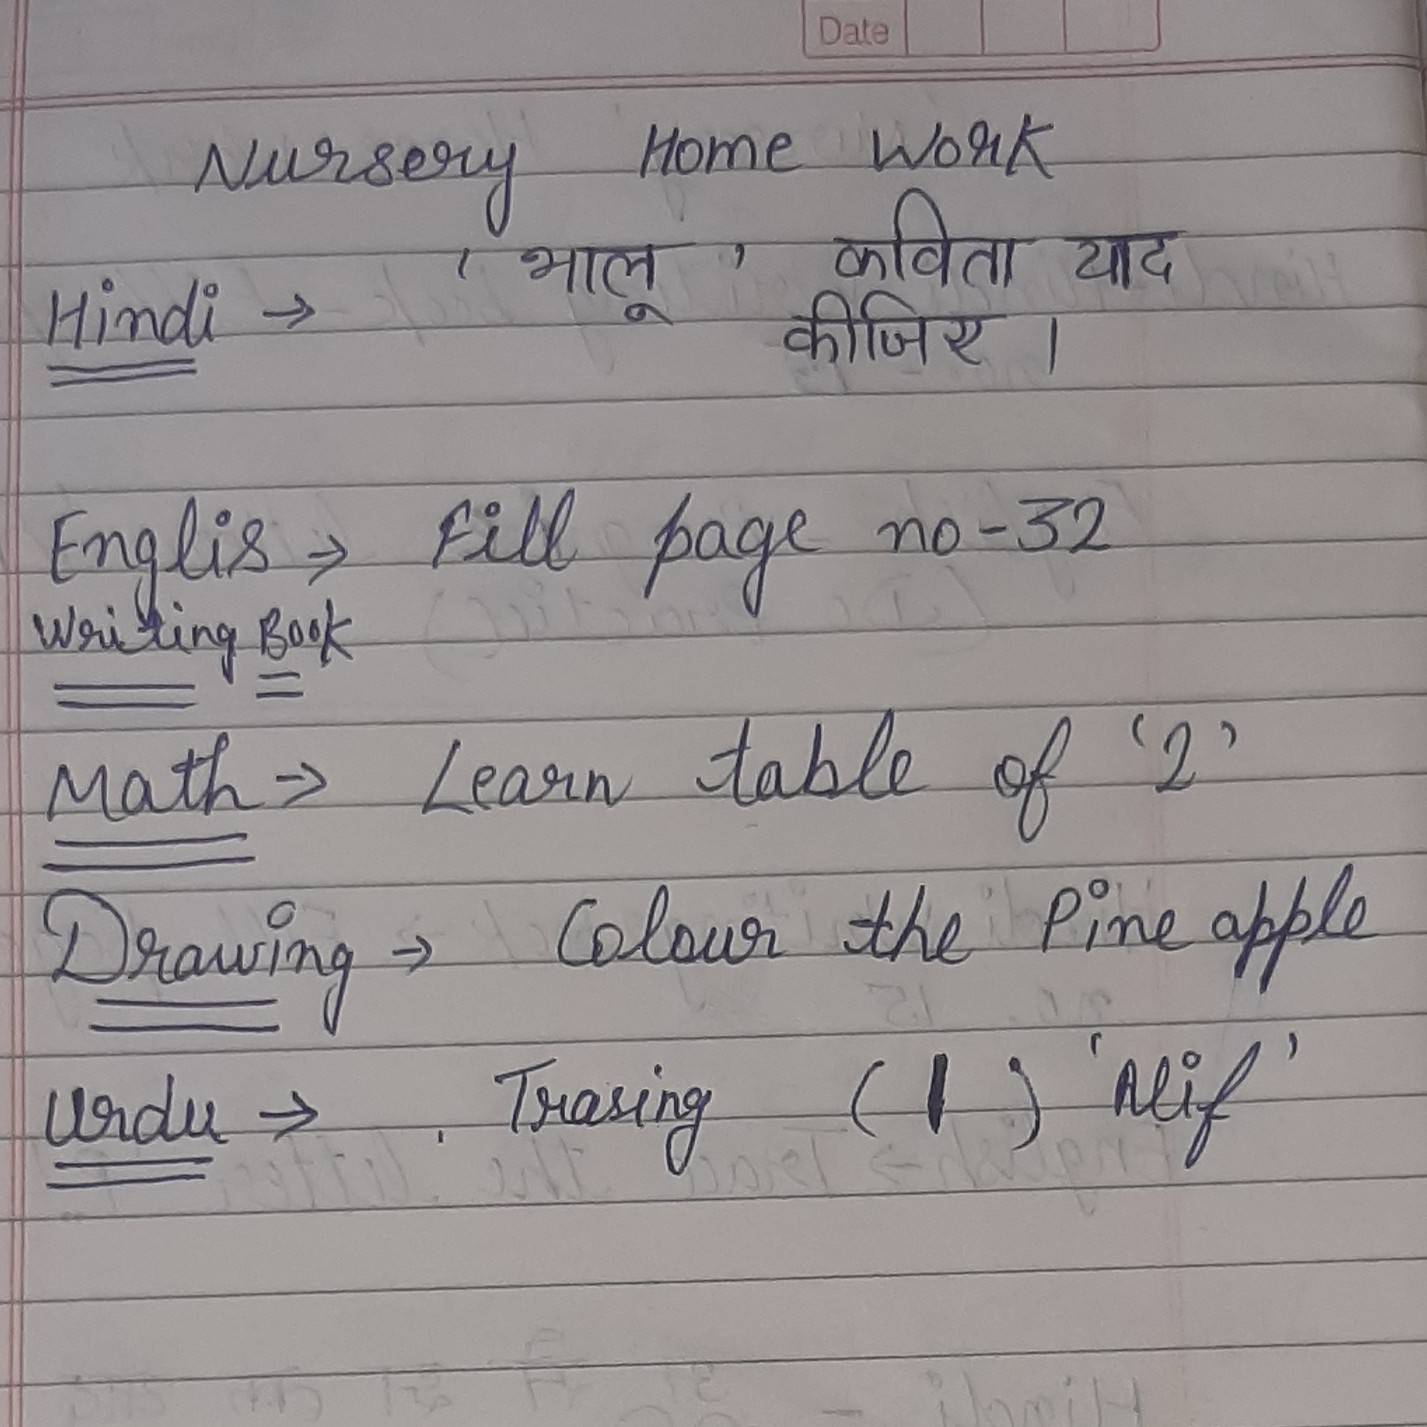 Date
Nursery Home Work
Hindi → ' भालू ' कविता याद
कीजिए ।
Englis → Fill page no-32
Writing Book
Math → Learn table of '2'
Drawing → Colour the Pine apple
Urdu → . Trasing ( ا ) 'Alif'